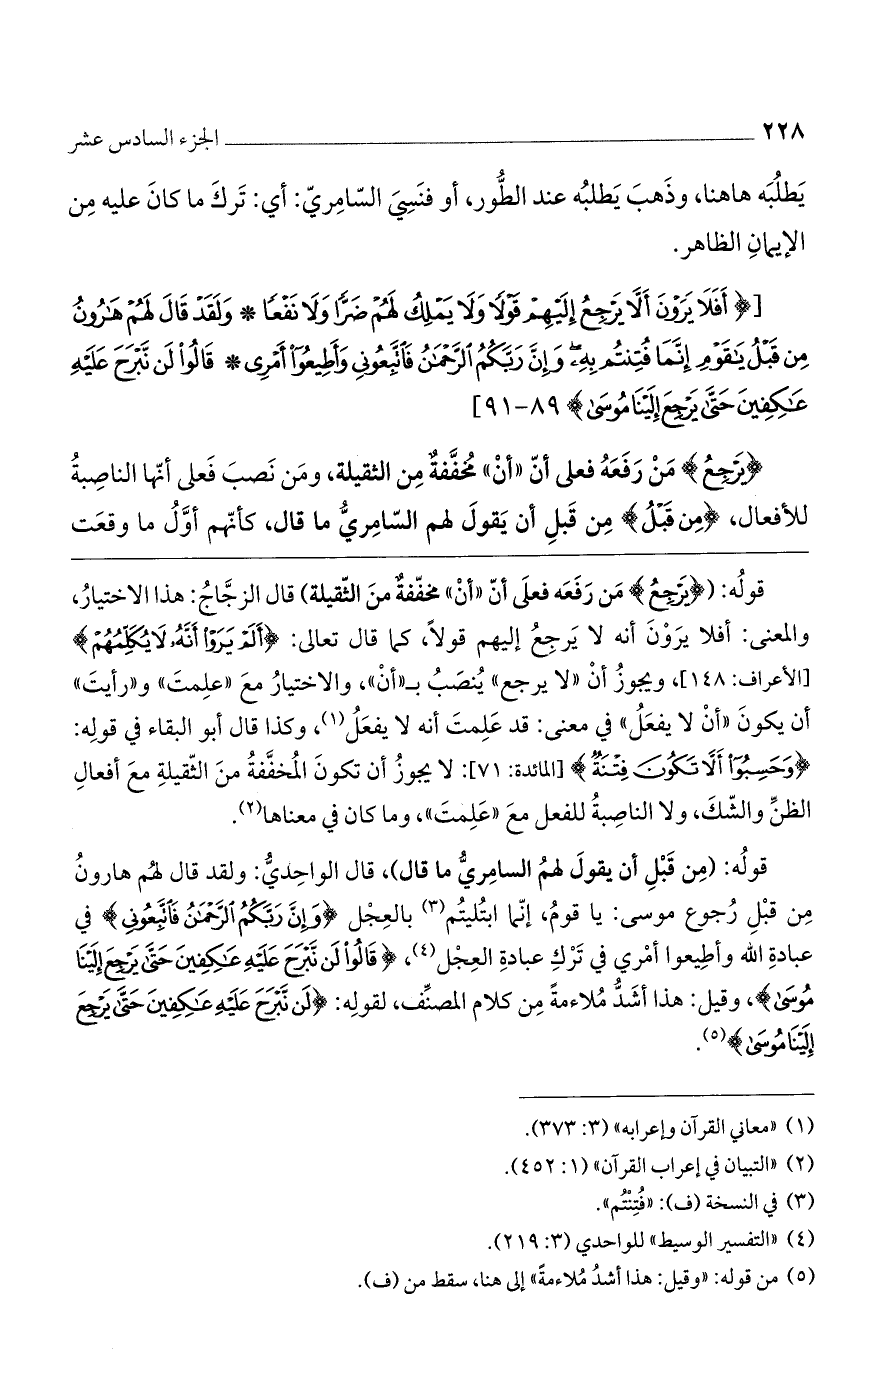 ٢٢٨ الجزء السادس عشر
يَطلُبُه هاهنا، وذَهبَ يَطلبُه عند الطُّور، أو فنَسِيَ السّامِريّ: أي: تَركَ ما كانَ عليه مِن
الإيمانِ الظاهر.
[﴿ أَفَلَا يَرَوْنَ أَلَّا يَرْجِعُ إِلَيْهِمْ قَوْلًا وَلَا يَمْلِكُ لَهُمْ ضَرًّا وَلَا نَفْعًا * وَلَقَدْ قَالَ لَهُمْ هَٰرُونُ
مِن قَبْلُ يَٰقَوْمِ إِنَّمَا فُتِنتُم بِهِۦ وَإِنَّ رَبَّكُمُ ٱلرَّحْمَٰنُ فَٱتَّبِعُونِى وَأَطِيعُوٓا۟ أَمْرِى * قَالُوا۟ لَن نَّبْرَحَ عَلَيْهِ
عَٰكِفِينَ حَتَّىٰ يَرْجِعَ إِلَيْنَا مُوسَىٰ ﴾ ٨٩-٩١]
﴿يَرْجِعُ ﴾ مَنْ رَفَعَهُ فعلى أنّ «أنْ» مُخفَّفةٌ مِن الثقيلة، ومَن نَصبَ فَعلى أنّها الناصِبةُ
للأفعال، ﴿مِن قَبْلُ ﴾ مِن قَبلِ أن يَقولَ لهم السّامِريُّ ما قال، كأنّهم أوَّلُ ما وقعَت
قولُه: (﴿يَرْجِعُ ﴾ مَن رَفعَه فعلَى أنّ «أنْ» مخفّفةٌ منَ الثّقيلة) قال الزجَّاجُ: هذا الاختيارُ،
والمعنى: أفلا يرَوْنَ أنه لا يَرجِعُ إليهم قولاً، كما قال تعالى: ﴿أَلَمْ يَرَوْا أَنَّهُۥ لَا يُكَلِّمُهُمْ ﴾
[الأعراف: ١٤٨]، ويجوزُ أنْ «لا يرجع» يُنصَبُ بـ«أنْ»، والاختيارُ معَ «علِمتَ» و«رأيتَ»
أن يكونَ «أنْ لا يفعَلُ» في معنى: قد عَلِمتَ أنه لا يفعَلُ(١)، وكذا قال أبو البقاء في قولِه:
﴿وَحَسِبُوٓا۟ أَلَّا تَكُونَ فِتْنَةٌ ﴾ [المائدة: ٧١]: لا يجوزُ أن تكونَ المُخفَّفةُ منَ الثّقيلةِ معَ أفعالِ
الظنِّ والشّكَ، ولا الناصِبةُ للفعل معَ «عَلِمتَ»، وما كان في معناها(٢).
قولُه: (مِن قَبْلِ أن يقولَ لهمُ السامريُّ ما قال)، قال الواحِديُّ: ولقد قال لهم هارونُ
مِن قبْلِ رُجوع موسى: يا قومُ، إنّما ابتُليتُم(٣) بالعِجْل ﴿وَإِنَّ رَبَّكُمُ ٱلرَّحْمَٰنُ فَٱتَّبِعُونِى ﴾ في
عبادةِ الله وأطِيعوا أمْري في تَرْكِ عبادةِ العِجْل(٤)، ﴿قَالُوا۟ لَن نَّبْرَحَ عَلَيْهِ عَٰكِفِينَ حَتَّىٰ يَرْجِعَ إِلَيْنَا
مُوسَىٰ﴾، وقيل: هذا أشَدُّ مُلاءمةً مِن كلام المصنِّف، لقولِه: ﴿لَن نَّبْرَحَ عَلَيْهِ عَٰكِفِينَ حَتَّىٰ يَرْجِعَ
إِلَيْنَا مُوسَىٰ﴾(٥).
(١) «معاني القرآن وإعرابه» (٣: ٣٧٣).
(٢) «التبيان في إعراب القرآن» (١: ٤٥٢).
(٣) في النسخة (ف): «فُتِنْتُم».
(٤) «التفسير الوسيط» للواحدي (٣: ٢١٩).
(٥) من قوله: «وقيل: هذا أشدُ مُلاءمةً» إلى هنا، سقط من (ف).